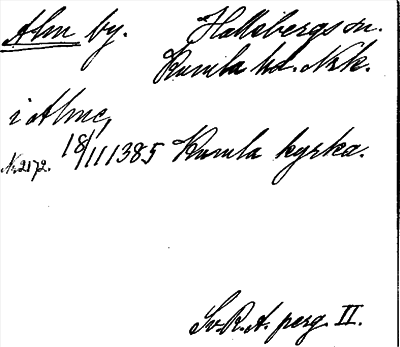 Alm by. Hallsbergs sn.
Kumla hd. Nrk.
i Alme,
Nr 2172. 18/11 1385 Kumla kyrka.
Sv. R. A. perg. II.